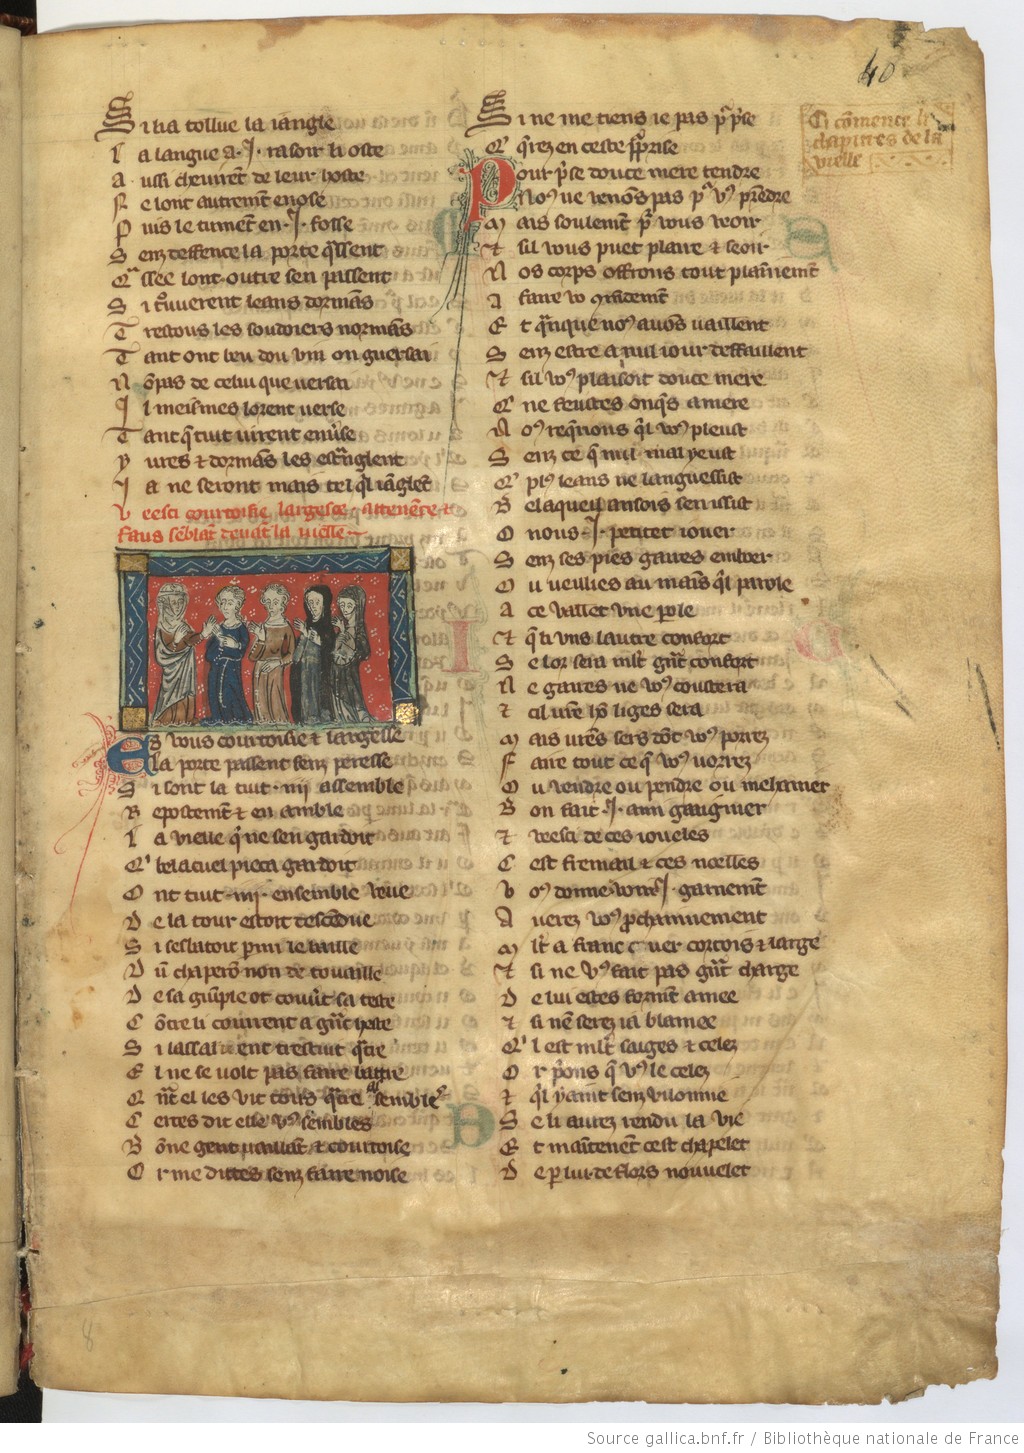 40
Si li a tollue la iangle
L a langue a .I. rasoir li oste
A ussi chevirent de leur hoste
N e lont autrement enosse
P uis le tument en .I. fosse
S enz deffence la porte q̃ssent
Q̃ ssee lont outre sen passent
S i truverent leans dormãs
T restous les soudoiers normãs
T ant ont beu dou vin on guersai
N õ pas de celui que versai
I l meismes lorent verse
T ant q̃ tuit virent envse
Y vres & dormãs les estrãglent
J a ne seront mais tel q̃l iãglẽt
Veesci courtoisie largesce attenẽce &
faus sẽblãt devãt la vielle
Es vous courtoisie & largesse
La porte passent senz peresse
S i sont la tuit .iiij. assemble
R epostemẽt & en amble
L a vielle q̃ ne sen gardoit
Q' belacuel pieca gardoit
O nt tuit .iiij. ensemble veue
D e la tour estoit descẽdue
S i sesbatoit parmi le baille
D ũ chaperõ non de touaille
D e sa guimple ot couṽt sa teste
C õtre li courent a grãt heste
S i lassaillent trestuit q̃tre
E l ne se volt pas faire batre
Q nt el les vit tous q̃tre assemblez
C ertes dit elle vous sembles
B õne gent vaillãt & courtoise
O r me dittes senz faire noise
Si ne me tiens ie pas pour prise
Q' q̃rez en ceste pourprise
Pour prise douce mere tendre
Nous ne venõs pas pour vous prendre
M ais seulement pour vous veoir
Et sil vous puet plaire & seoir
N os corps offrons tout plainnemẽt
A faire vo cõmãdemẽt
E t quãnque nous avõs vaillent
S enz estre a nul iour deffaillent
Et sil vous plaisoit douce mere
Q' ne feustes onques amere
V os requerions q̃l vous pleust
S enz ce q̃ nul mal y eust
Q' plus leans ne languessist
B elaqueil ansois sen issist
O nous .I. petitet iouer
S enz ses pies gaires enboer
O u veullies au mains q̃l parole
A ce vallet une parole
Et q̃ li uns lautre confort
S e lor sera mlt grãt confort
N e gaires ne vous coustera
Et cil vostre hõs liges sera
M ais vostre sers dont vous porrez
F aire tout ce q̃ vous vorrez
O u vendre ou pendre ou mehaingner
B on fait .I. ami gaaignier
Et veesci de ces ioueles
C est fremail & ces noelles
V ous donne voire .I. garnemẽt
A verez vous prochainnement
M lt a franc cuer cortois & large
Et si ne vous fait pas grãt charge
D e lui estes formẽt amee
Et si nẽ serez ia blamee
Q' l est mlt saiges & celez
O r prions q̃ vous le celez
Et q̃l y aint senz vilonnie
S e li aurez rendu la vie
E t maintenẽt cest chapelet
D e par lui de flors nouvelet
Ci cõmence li
chapitres de la
vielle
8
Source gallica.bnf.fr / Bibliothèque nationale de France